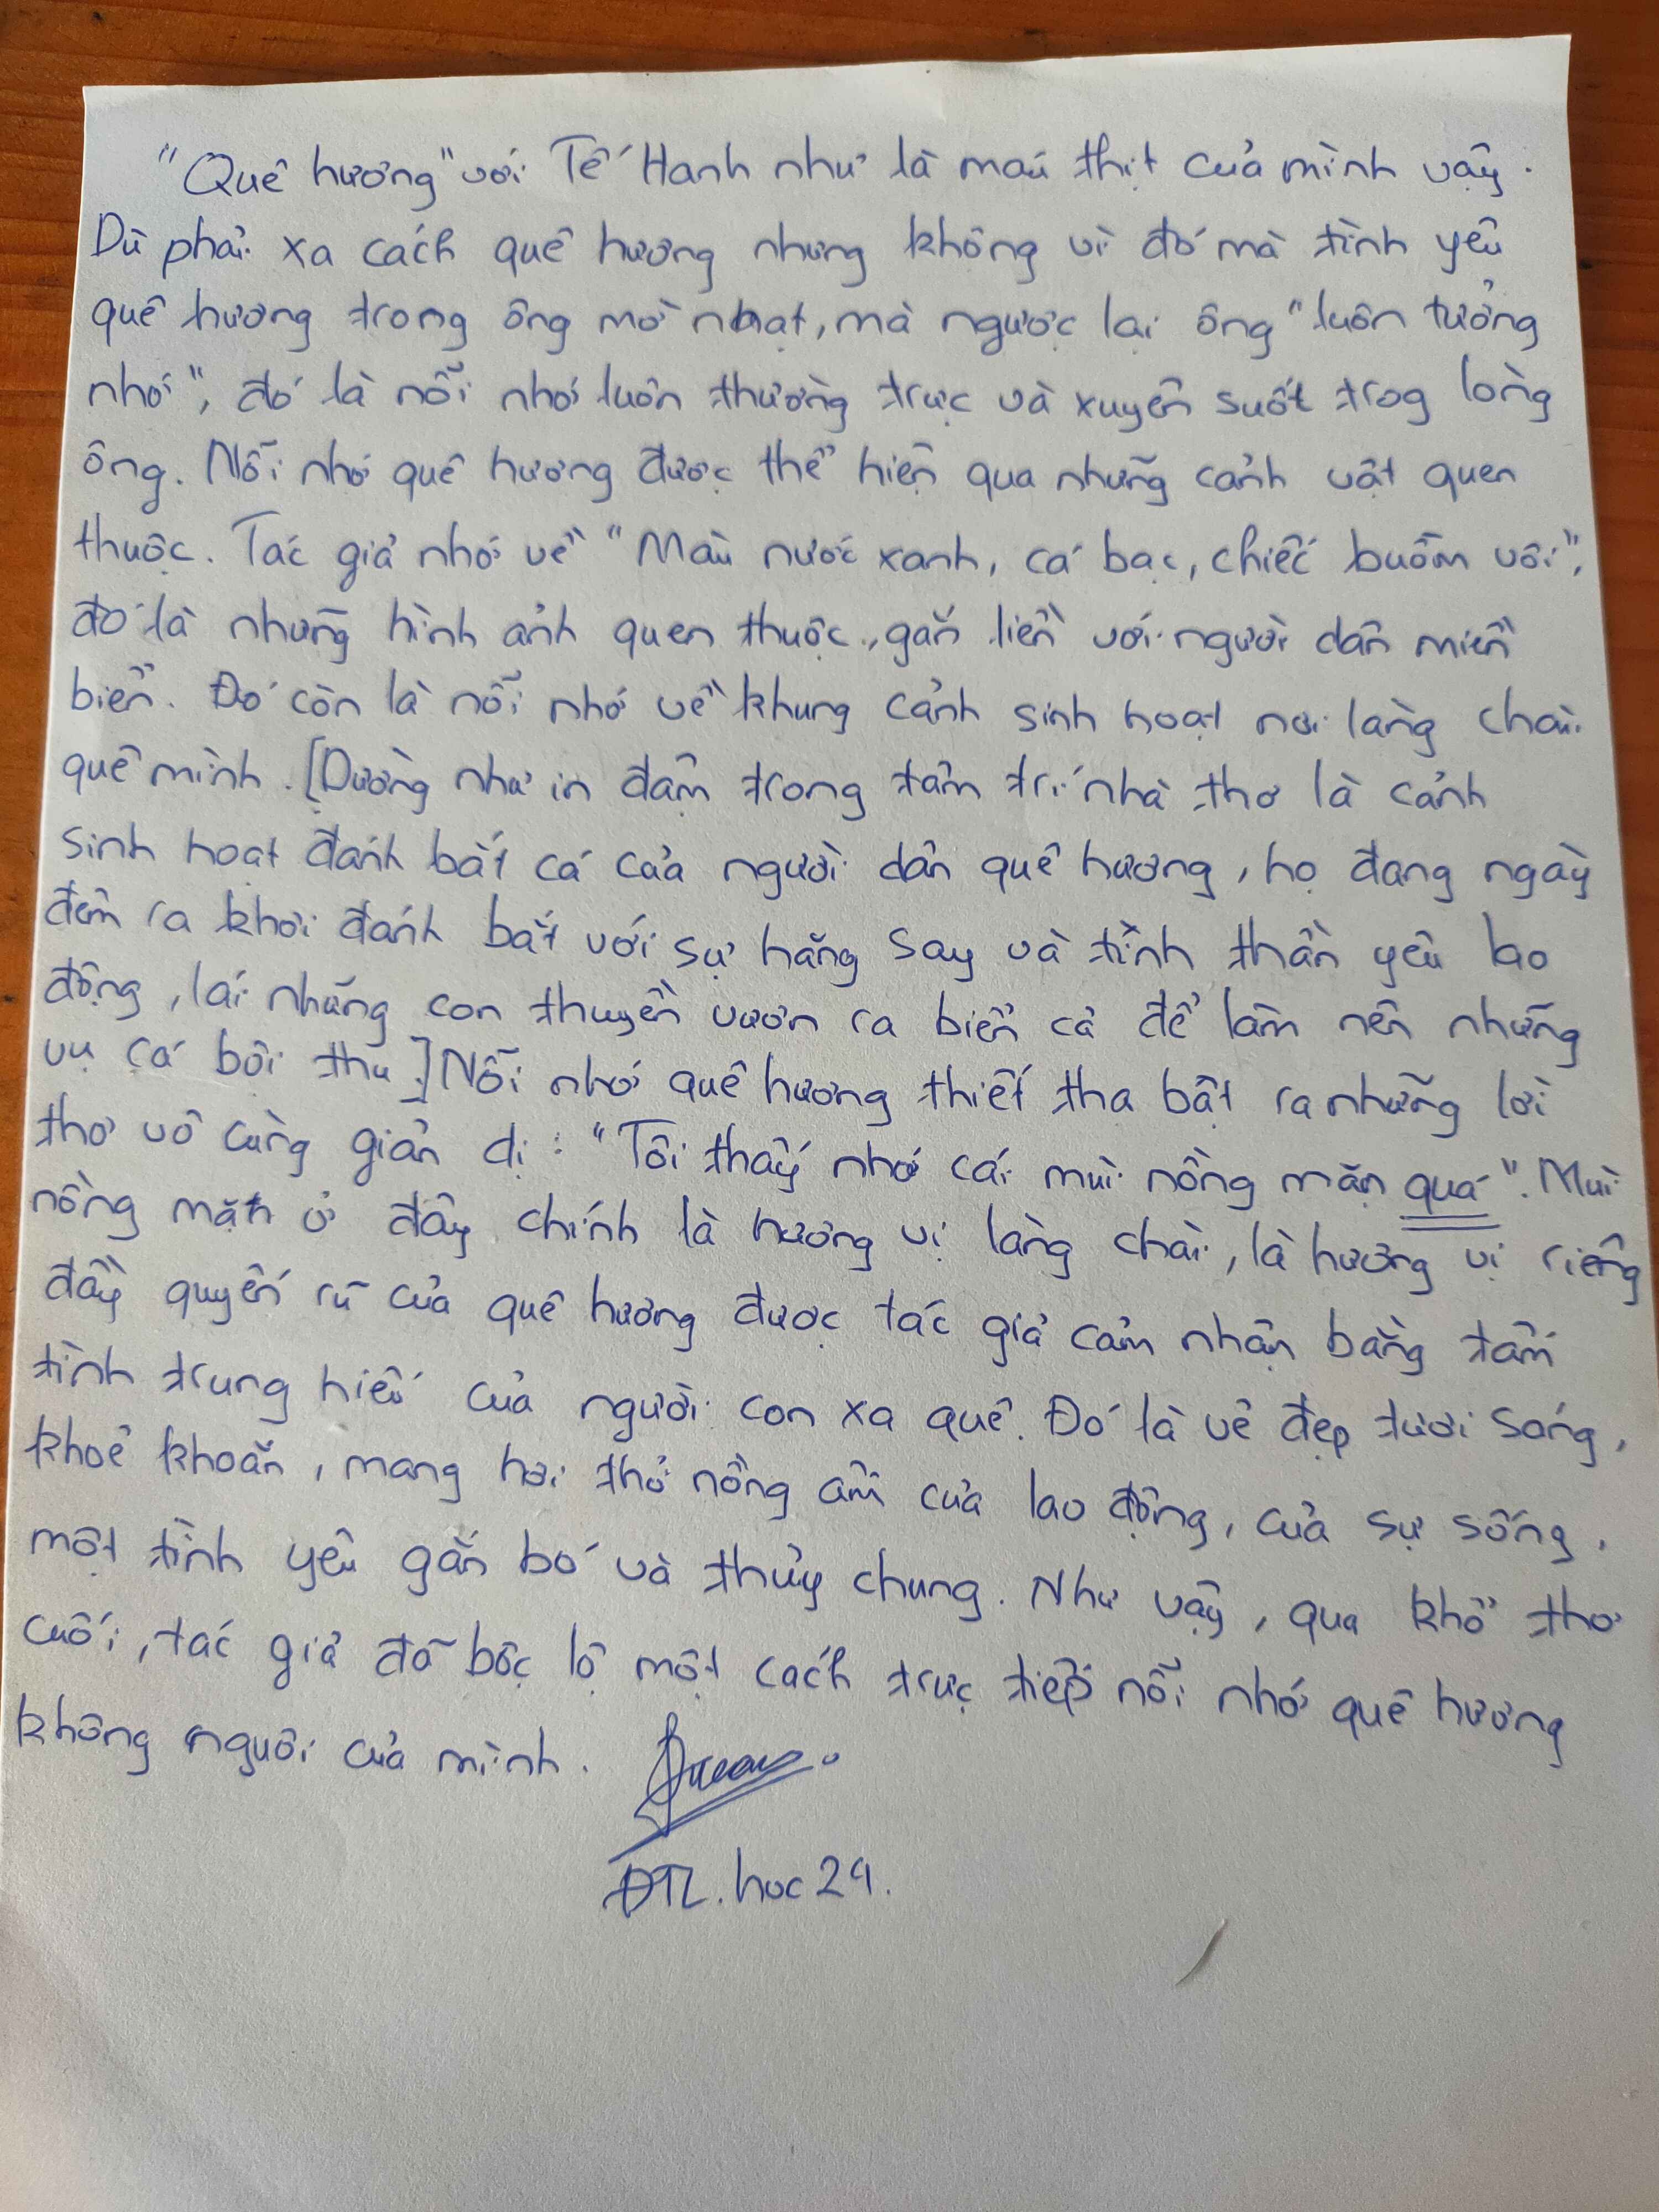 "Quê hương" với Tế Hanh như là máu thịt của mình vậy.
Dù phải xa cách quê hương nhưng không vì đó mà tình yêu
quê hương trong ông mờ nhạt, mà ngược lại ông "luôn tưởng
nhớ", đó là nỗi nhớ luôn thường trực và xuyên suốt trog lòng
ông. Nỗi nhớ quê hương được thể hiện qua những cảnh vật quen
thuộc. Tác giả nhớ về "Màu nước xanh, cá bạc, chiếc buồm vôi",
đó là những hình ảnh quen thuộc, gắn liền với người dân miền
biển. Đó còn là nỗi nhớ về khung cảnh sinh hoạt nơi làng chài
quê mình. [Dường như in đậm trong tâm trí nhà thơ là cảnh
sinh hoạt đánh bắt cá của người dân quê hương, họ đang ngày
đêm ra khơi đánh bắt với sự hăng say và tinh thần yêu lao
động, lái những con thuyền vươn ra biển cả để làm nên những
vụ cá bội thu.] Nỗi nhớ quê hương thiết tha bật ra những lời
thơ vô cùng giản dị: "Tôi thấy nhớ cái mùi nồng mặn quá". Mùi
nồng mặn ở đây chính là hương vị làng chài, là hương vị riêng
đầy quyến rũ của quê hương được tác giả cảm nhận bằng tấm
tình trung hiếu của người con xa quê. Đó là vẻ đẹp tươi sáng,
khoẻ khoắn, mang hơi thở nồng ấm của lao động, của sự sống,
một tình yêu gắn bó và thủy chung. Như vậy, qua khổ thơ
cuối, tác giả đã bộc lộ một cách trực tiếp nỗi nhớ quê hương
không nguôi của mình.
ĐTL.hoc24.